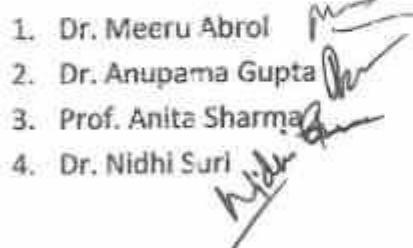 1. Dr. Meeru Abrol
2. Dr. Anupama Gupta
3. Prof. Anita Sharma
4. Dr. Nidhi Suri
Nidhi